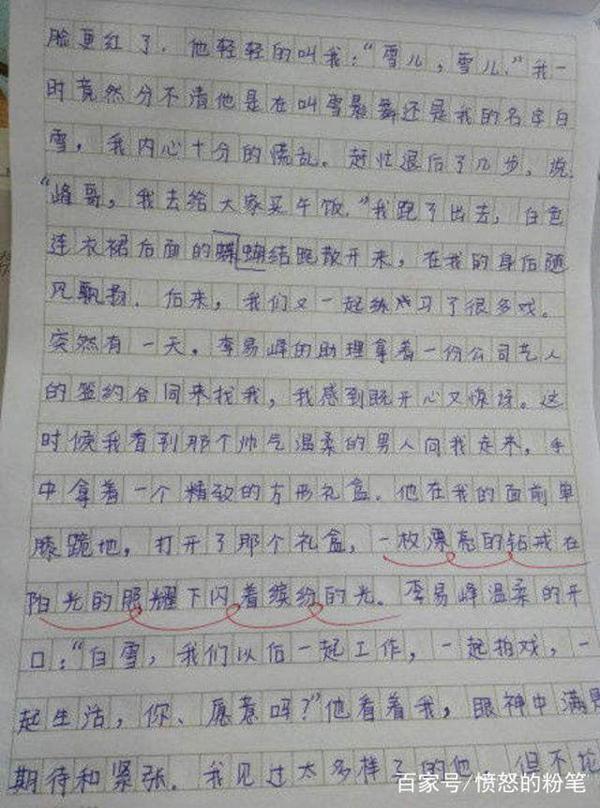 脸更红了，他轻轻的叫我："雪儿，雪儿。"我一
时竟然分不清他是在叫雪影舞还是我的名字白
雪，我内心十分的慌乱。赶忙退后了几步，说
"峰哥，我去给大家买午饭。"我跑了出去，白色
连衣裙后面的蝴蝶结跑散开来，在我的身后随
风飘扬．后来，我们又一起练习了很多戏。
突然有一天，李易峰的助理拿着一份公司艺人
的签约合同来找我，我感到既开心又惊讶。这
时候我看到那个帅气温柔的男人向我走来，手
中拿着一个精致的方形礼盒．他在我的面前单
膝跪地，打开了那个礼盒，一枚漂亮的钻戒在
阳光的照耀下闪着缤纷的光。李易峰温柔的开
口："白雪，我们以后一起工作，一起拍戏，一
起生活，你、愿意吗？"他看着我，眼神中满是
期待和紧张．我见过太多样子的他，但不论
百家号/愤怒的粉笔